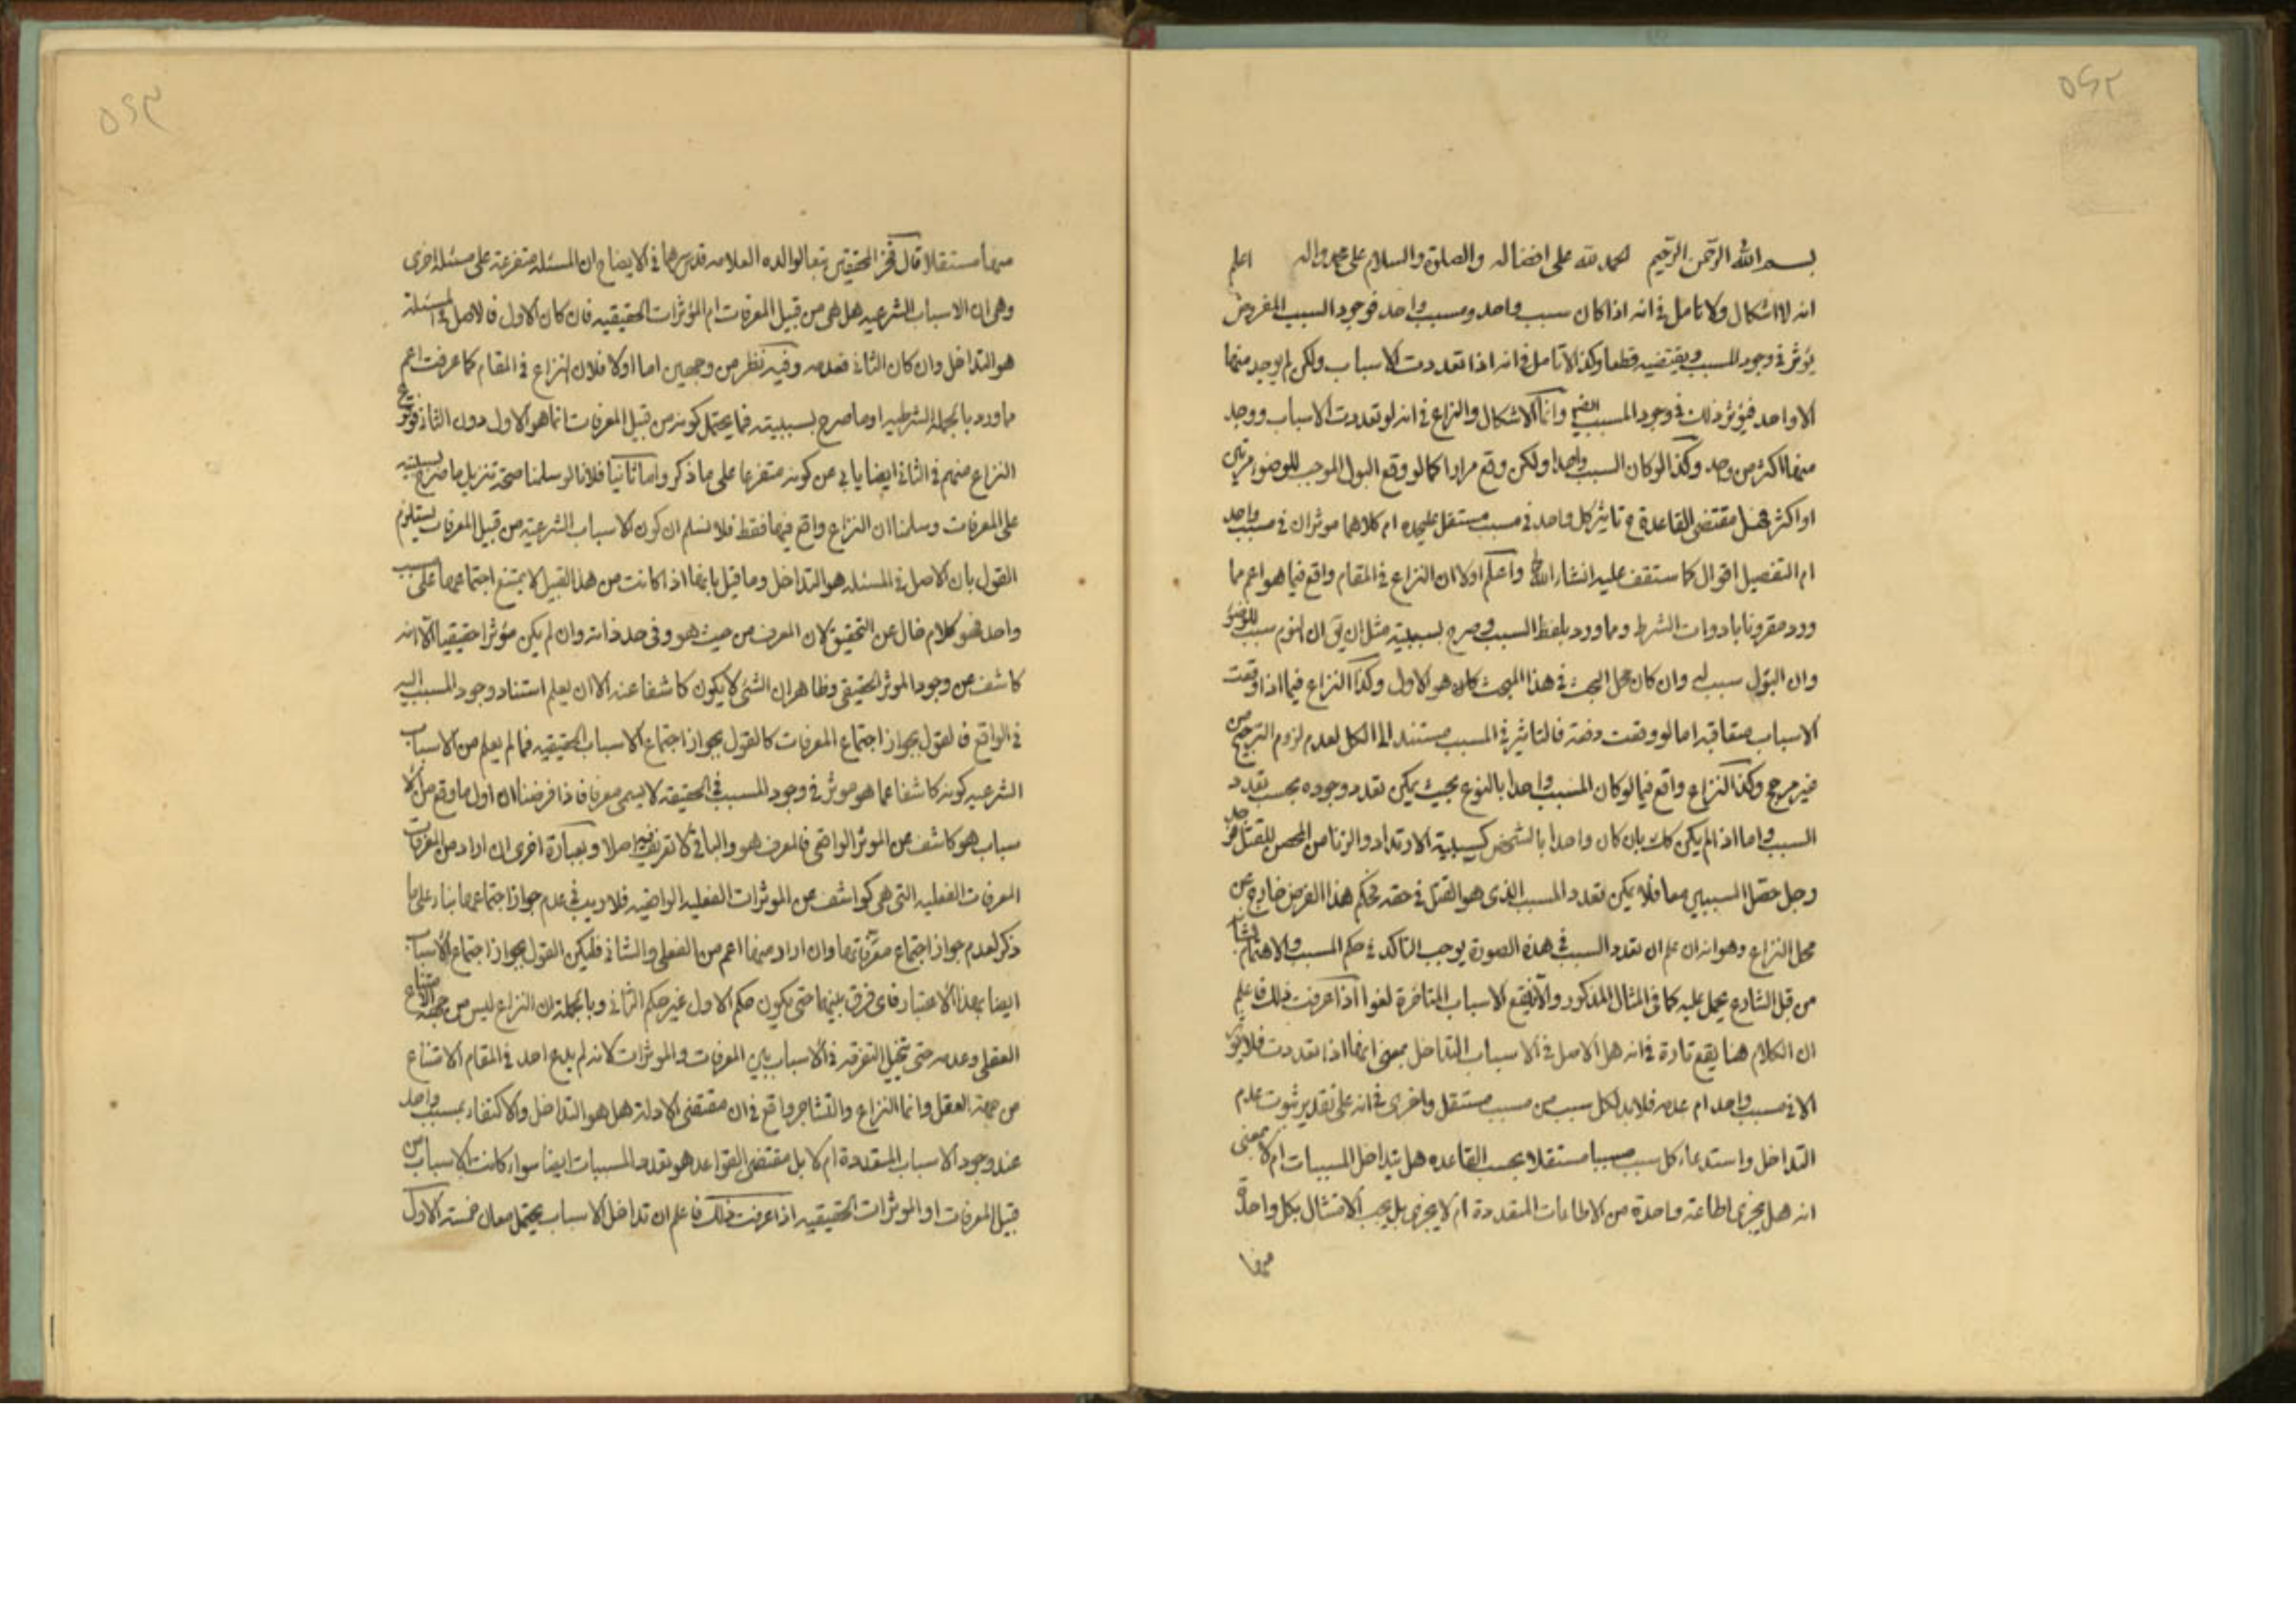 ۵۴۲
بسم الله الرحمن الرحيم الحمد لله على افضاله والصلوة والسلام على محمد واله اعلم
انه لا اشكال ولا تامل فى انه اذا كان سبب واحد ومسبب واحد فوجود السبب المفروض
يؤثر فى وجود المسبب ويقتضيه قطعا وكذا لا تامل فى انه اذا تعددت الاسباب ولكن لم يوجد منها
الا واحد فيؤثر ذلك فى وجود المسبب ايضا وانما الاشكال والنزاع فى انه لو تعددت الاسباب ووجد
منها اكثر من واحد وكذا لو كان السبب واحدا ولكن وقع مرارا كما لو وقع البول الموجب للوضوء مرتين
او اكثر فهل مقتضى القاعدة ح تاثير كل واحد فى مسبب مستقل عليحده ام كلاهما موثران فى مسبب واحد
ام التفصيل اقوال كما ستقف عليه انشاء الله واعلم اولا ان النزاع فى المقام واقع فيما هو اعم مما
ورد مقرونا بادوات الشرط وما ورد بلفظ السبب وصرح بسببيته مثل ان يق ان النوم سبب للوضوء
وان البول سبب له وان كان محل البحث فى هذا المبحث كان هو الاول وكذا النزاع فيما اذا وقعت
الاسباب متعاقبه اما لو وقعت دفعة فالتاثير فى المسبب مستند الى الكل لعدم لزوم الترجيح من
غير مرجح وكذا النزاع واقع فيما لو كان المسبب واحدا بالنوع بحيث يمكن تعدد وجوده بحسب تعدد
السبب واما اذا لم يكن كك بان كان واحدا بالشخص كسببية الارتداد والزنا من المحصن للقتل فى حق
رجل حصل السببين معا فلا يمكن تعدد المسبب الذى هو القتل فى حقه فحكم هذا الفرض خارج عن
محل النزاع وهو انه ان علم ان تعدد السبب فى هذه الصورة يوجب التاكد فى حكم المسبب والاهتمام بشانه
من قبل الشارع يحمل عليه كما فى المثال المذكور والا فيقع الاسباب المتاخرة لغوا اذا عرفت ذلك فاعلم
ان الكلام هنا يقع تارة فى انه هل الاصل فى الاسباب التداخل بمعنى انها اذا تعددت فلا يؤثر
الا فى مسبب واحد ام عدمه فلا بد لكل سبب من مسبب مستقل واخرى فى انه على تقدير ثبوت عدم
التداخل واستدعاء كل سبب مسببا مستقلا بحسب القاعده هل يتداخل المسببات ام لا بمعنى
انه هل يجزى اطاعة واحدة من الاطاعات المتعددة ام لا يجزى بل يجب الامتثال بكل واحدة
منها
۵۴۳
منها مستقلا قال فخر المحققين تبعا لوالده العلامه قدس سرهما فى الايضاح ان المسئله متفرعة على مسئله اخرى
وهى ان الاسباب الشرعيه هل هى من قبيل المعرفات ام المؤثرات الحقيقيه فان كان الاول فالاصل فى المسئلة
هو التداخل وان كان الثانى فعدمه وفيه نظر من وجهين اما اولا فلان النزاع فى المقام كما عرفت اعم
ما ورد بالجملة الشرطيه او ما صرح بسببيته فما يحتمل كونه من قبيل المعرفات انما هو الاول دون الثانى فوقوع
النزاع منهم فى الثانى ايضا يابى عن كونه متفرعا على ما ذكر واما ثانيا فلانا لو سلمنا صحة تنزيل ما صرح بسببيته
على المعرفات وسلمنا ان النزاع واقع فيها فقط فلا نسلم ان كون الاسباب الشرعية من قبيل المعرفات يستلزم
القول بان الاصل فى المسئله هو التداخل وما قيل بانها اذا كانت من هذا القبيل لا يمتنع اجتماعها على مسبب
واحد فهو كلام خال عن التحقيق لان المعرف من حيث هو وفى حد ذاته وان لم يكن مؤثرا حقيقيا الا انه
كاشف عن وجود الموثر الحقيقى وظاهر ان الشئ لا يكون كاشفا عنه الا ان يعلم استناد وجود المسبب اليه
فى الواقع فالقول بجواز اجتماع المعرفات كالقول بجواز اجتماع الاسباب الحقيقيه فما لم يعلم من الاسباب
الشرعيه كونه كاشفا عما هو موثر فى وجود المسبب فى الحقيقه لا يسمى معرفا فاذا فرضنا ان اول ما وقع من الا
سباب هو كاشف عن الموثر الواقعى فالمعرف هو والباقى لا تعريف فيه اصلا وبعبارة اخرى ان اراد من المعرفات
المعرفات الفعليه التى هى كواشف عن الموثرات الفعليه الواقعيه فلا ريب فى عدم جواز اجتماعها بناء على ما
ذكر لعدم جواز اجتماع معرفاتها وان اراد منها اعم من الفعلى والشانى فليكن القول بجواز اجتماع الاسباب
ايضا بهذا الاعتبار فاى فرق بينهما حتى يكون حكم الاول غير حكم الثانى وبالجملة ان النزاع ليس من جهة الامتناع
العقلى وعدمه حتى يتخيل التفرقه فى الاسباب بين المعرفات والموثرات لانه لم يدع احد فى المقام الامتناع
من جهة العقل وانما النزاع والتشاجر واقع فى ان مقتضى الادلة هل هو التداخل والاكتفاء بمسبب واحد
عند وجود الاسباب المتعددة ام لا بل مقتضى القواعد هو تعدد المسببات ايضا سواء كانت الاسباب من
قبيل المعرفات او الموثرات الحقيقيه اذا عرفت ذلك فاعلم ان تداخل الاسباب يحتمل معان خمسة الاول